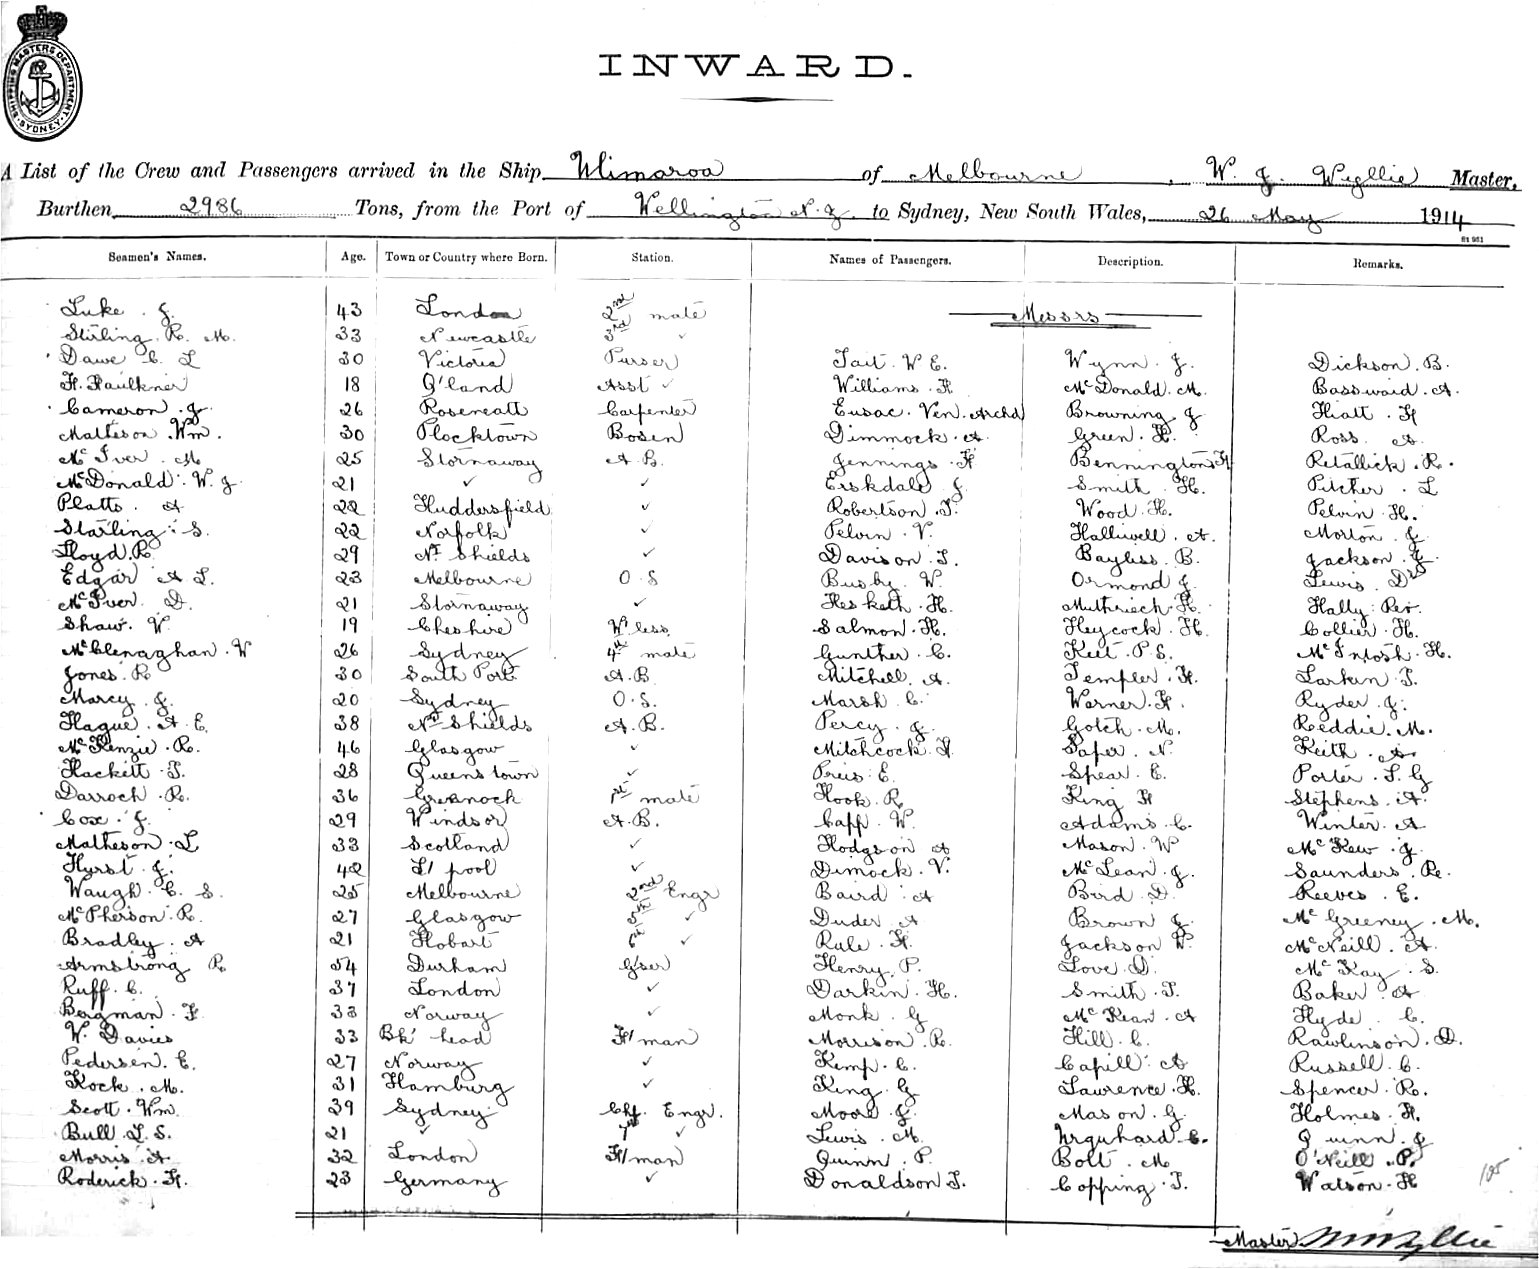 SHIPPING MASTERS DEPARTMENT SYDNEY
INWARD.
A List of the Crew and Passengers arrived in the Ship Ulimaroa of Melbourne, W. J. Wyllie Master,
Burthen 2986 Tons, from the Port of Wellington N.Z. to Sydney, New South Wales, 26 May 1914
Seamen's Names. Age. Town or Country where Born. Station. Names of Passengers. Description. Remarks.
Luke . J. 43 London 2nd mate Messrs
Stirling. R. M. 33 Newcastle 3rd ✓
Dawe C. L 30 Victoria Purser Tait. W E. Wynn. J. Dickson. B.
H. Faulkner 18 Q'land Asst ✓ Williams. H McDonald. M. Basswaid. A.
Cameron. J. 26 Roseneath Carpenter Eusac. Ven. Archd Browning J Hiatt. H
Matheson. Wm. 30 Plocktown Bosen Dimmock. A. Green. H. Ross. A.
McIver. M 25 Stornaway A.B. Jennings. H Bennington. H Retallick. R.
McDonald. W. J 21 ✓ ✓ Erskdale J. Smith. H. Pitcher. L
Platts. A 22 Huddersfield ✓ Robertson. T. Wood. H. Pelvin. H.
Starling. S. 22 Norfolk ✓ Pelvin. V. Halliwell. A. Morton. J.
Lloyd. R. 29 Nr Shields ✓ Davison. T. Bayliss. B. Jackson. J.
Edgar A L. 23 Melbourne O.S Busby. W. Ormond J. Lewis. Dr
McIver. D. 21 Stornaway ✓ Hesketh. H. Muthriech. H. Hally. Rev.
Shaw. W. 19 Cheshire W'less Salmon. H. Heycock. H. Collier. H.
McClenaghan. W 26 Sydney 4th mate Gunther. C. Keet. P. S. McIntosh. H.
Jones. R 30 South Port. A.B. Mitchell. A. Templer. H. Larkin. T.
Marcy. J. 20 Sydney O.S. Marsh. C. Warner. H. Ryder. J.
Hague. A. E. 38 Nr Shields A.B. Percy. J. Gotch. M. Reddie. M.
McKenzie. R. 46 Glasgow ✓ Mitchcock. H. Saper. N. Keith. A.
Hackett. T. 28 Queenstown ✓ Preis. E. Spear. E. Porter. T. G
Darroch. R. 36 Greenock 1st mate Hook. R King H Stephens. A.
Cox. J. 29 Windsor A.B. Capp. W. Adams. C. Winter. A
Matheson. L 33 Scotland ✓ Hodgson A Mason. W McKew. J.
Hyrst. J. 42 L'pool ✓ Dimock. V. McLean. J. Saunders. Re.
Waugh. C. S. 25 Melbourne 2nd Engr Baird. A Bird. D. Reeves. E.
McPherson. R. 27 Glasgow 5th ✓ Duder. A Brown J McGreeney. M.
Bradley. A 21 Hobart 6th ✓ Rule. H. Jackson W. McNeill. A.
Armstrong R 54 Durham G'ser Henry. P. Love. D. McKay. S.
Ruff. C. 37 London ✓ Darkin. H. Smith. T. Baker. A
Bergman. H 33 Norway ✓ Monk. G McKean. A Hyde. C.
W. Davies 33 Bk'head F'man Morrison. R. Hill. C. Rawlinson. D.
Pedersen. E. 27 Norway ✓ Kemp. C. Capill. A Russell. C.
Kock. M. 31 Hamburg ✓ King. G Lawrence. H. Spencer. R.
Scott. Wm. 39 Sydney Chf. Engr. Moore. J. Mason. G. Holmes. H.
Bull. L. S. 21 ✓ 7th ✓ Lewis. M. Urquhard. C. Quinn. J
Morris. A. 32 London F'man Quinn. P. Bolt. M. O'Neill. P.
Roderick. H. 23 Germany ✓ Donaldson T. Copping. T. Watson. H
105
Master W J Wyllie